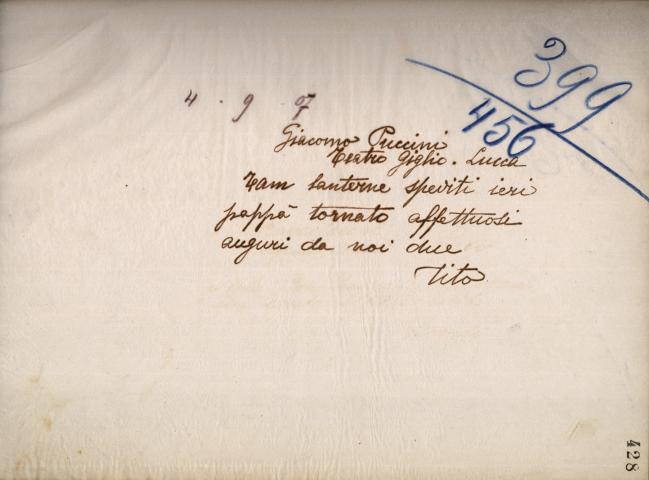 399
456
4 · 9 · 07
Giacomo Puccini
Teatro Giglio. Lucca
Tam lanterne spediti ieri
pappà tornato affettuosi
auguri da noi due
Tito
428